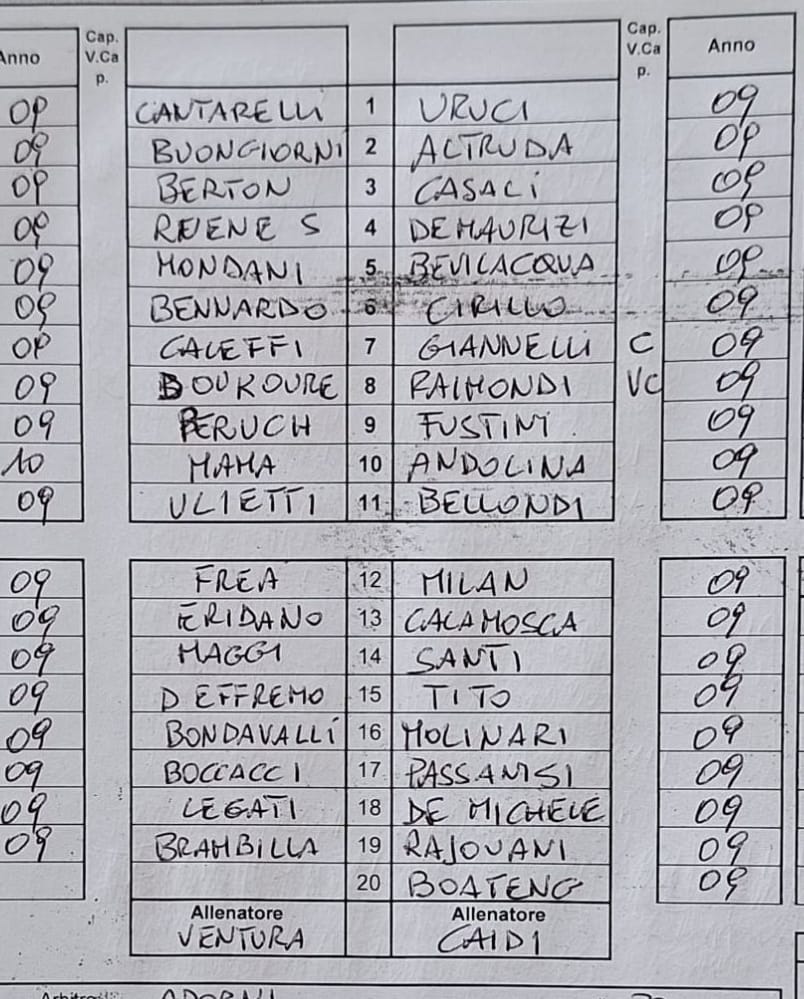 Anno Cap. V.Ca p. Cap. V.Ca p. Anno
09 CANTARELLI 1 URUCI 09
09 BUONGIORNI 2 ALTRUDA 09
09 BERTON 3 CASALI 09
09 REENE S 4 DEMAURIZI 09
09 MONDANI 5 BEVILACQUA 09
09 BENNARDO 6 CIRILLO 09
09 CALEFFI 7 GIANNELLI C 09
09 BOUROURE 8 RAIMONDI VC 09
09 PERUCH 9 FUSTINI 09
10 MAMA 10 ANDOLINA 09
09 ULIETTI 11 BELLONDI 09
09 FREA 12 MILAN 09
09 ERIDANO 13 CALAMOSCA 09
09 MAGGI 14 SANTI 09
09 DEFFREMO 15 TITO 09
09 BONDAVALLI 16 MOLINARI 09
09 BOCCACCI 17 PASSANISI 09
09 LEGATI 18 DE MICHELE 09
09 BRAMBILLA 19 RAJOVANI 09
20 BOATENG 09
Allenatore Allenatore
VENTURA CAIDI